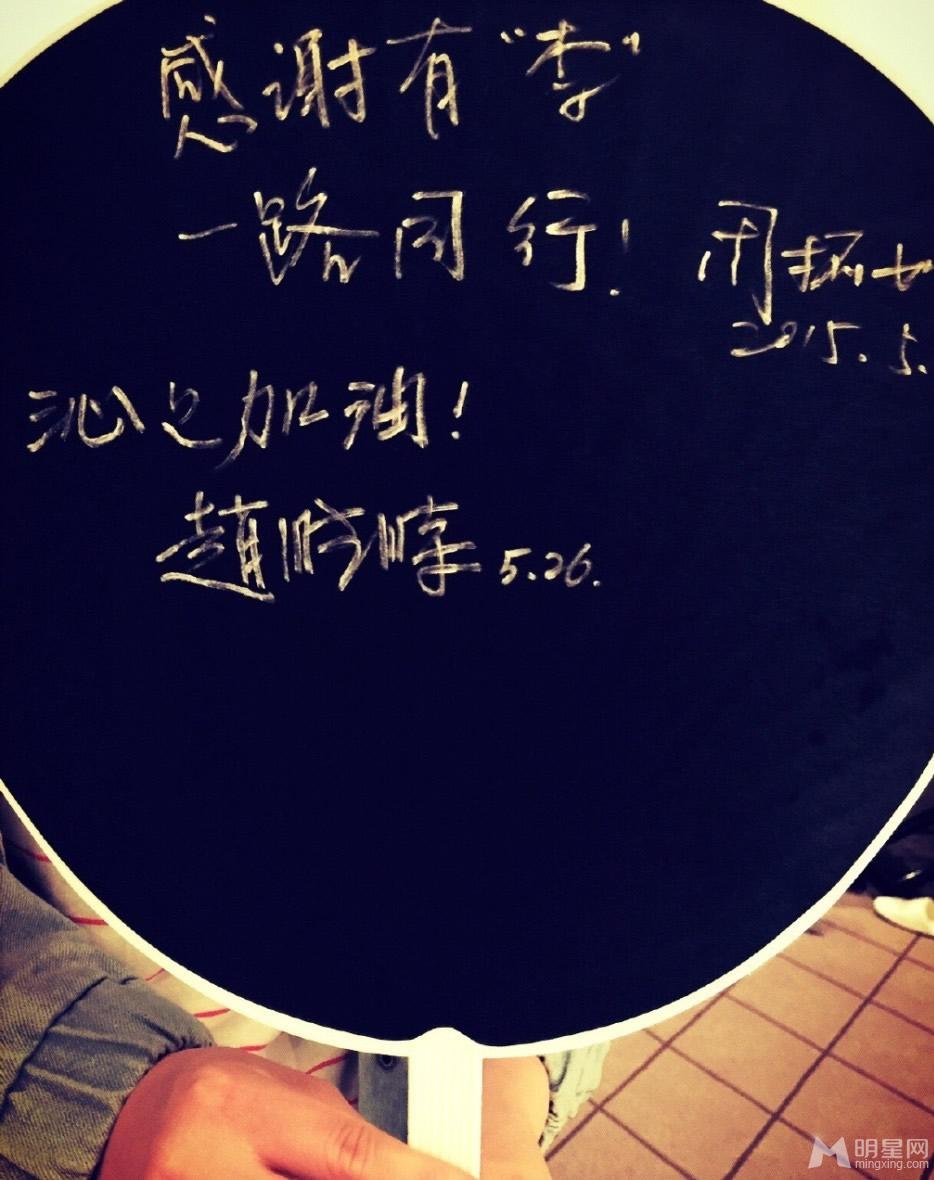 感谢有“李”
一路同行！
周
2015.5.
沁心加油！
趙 5.26.
明星网
mingxing.com